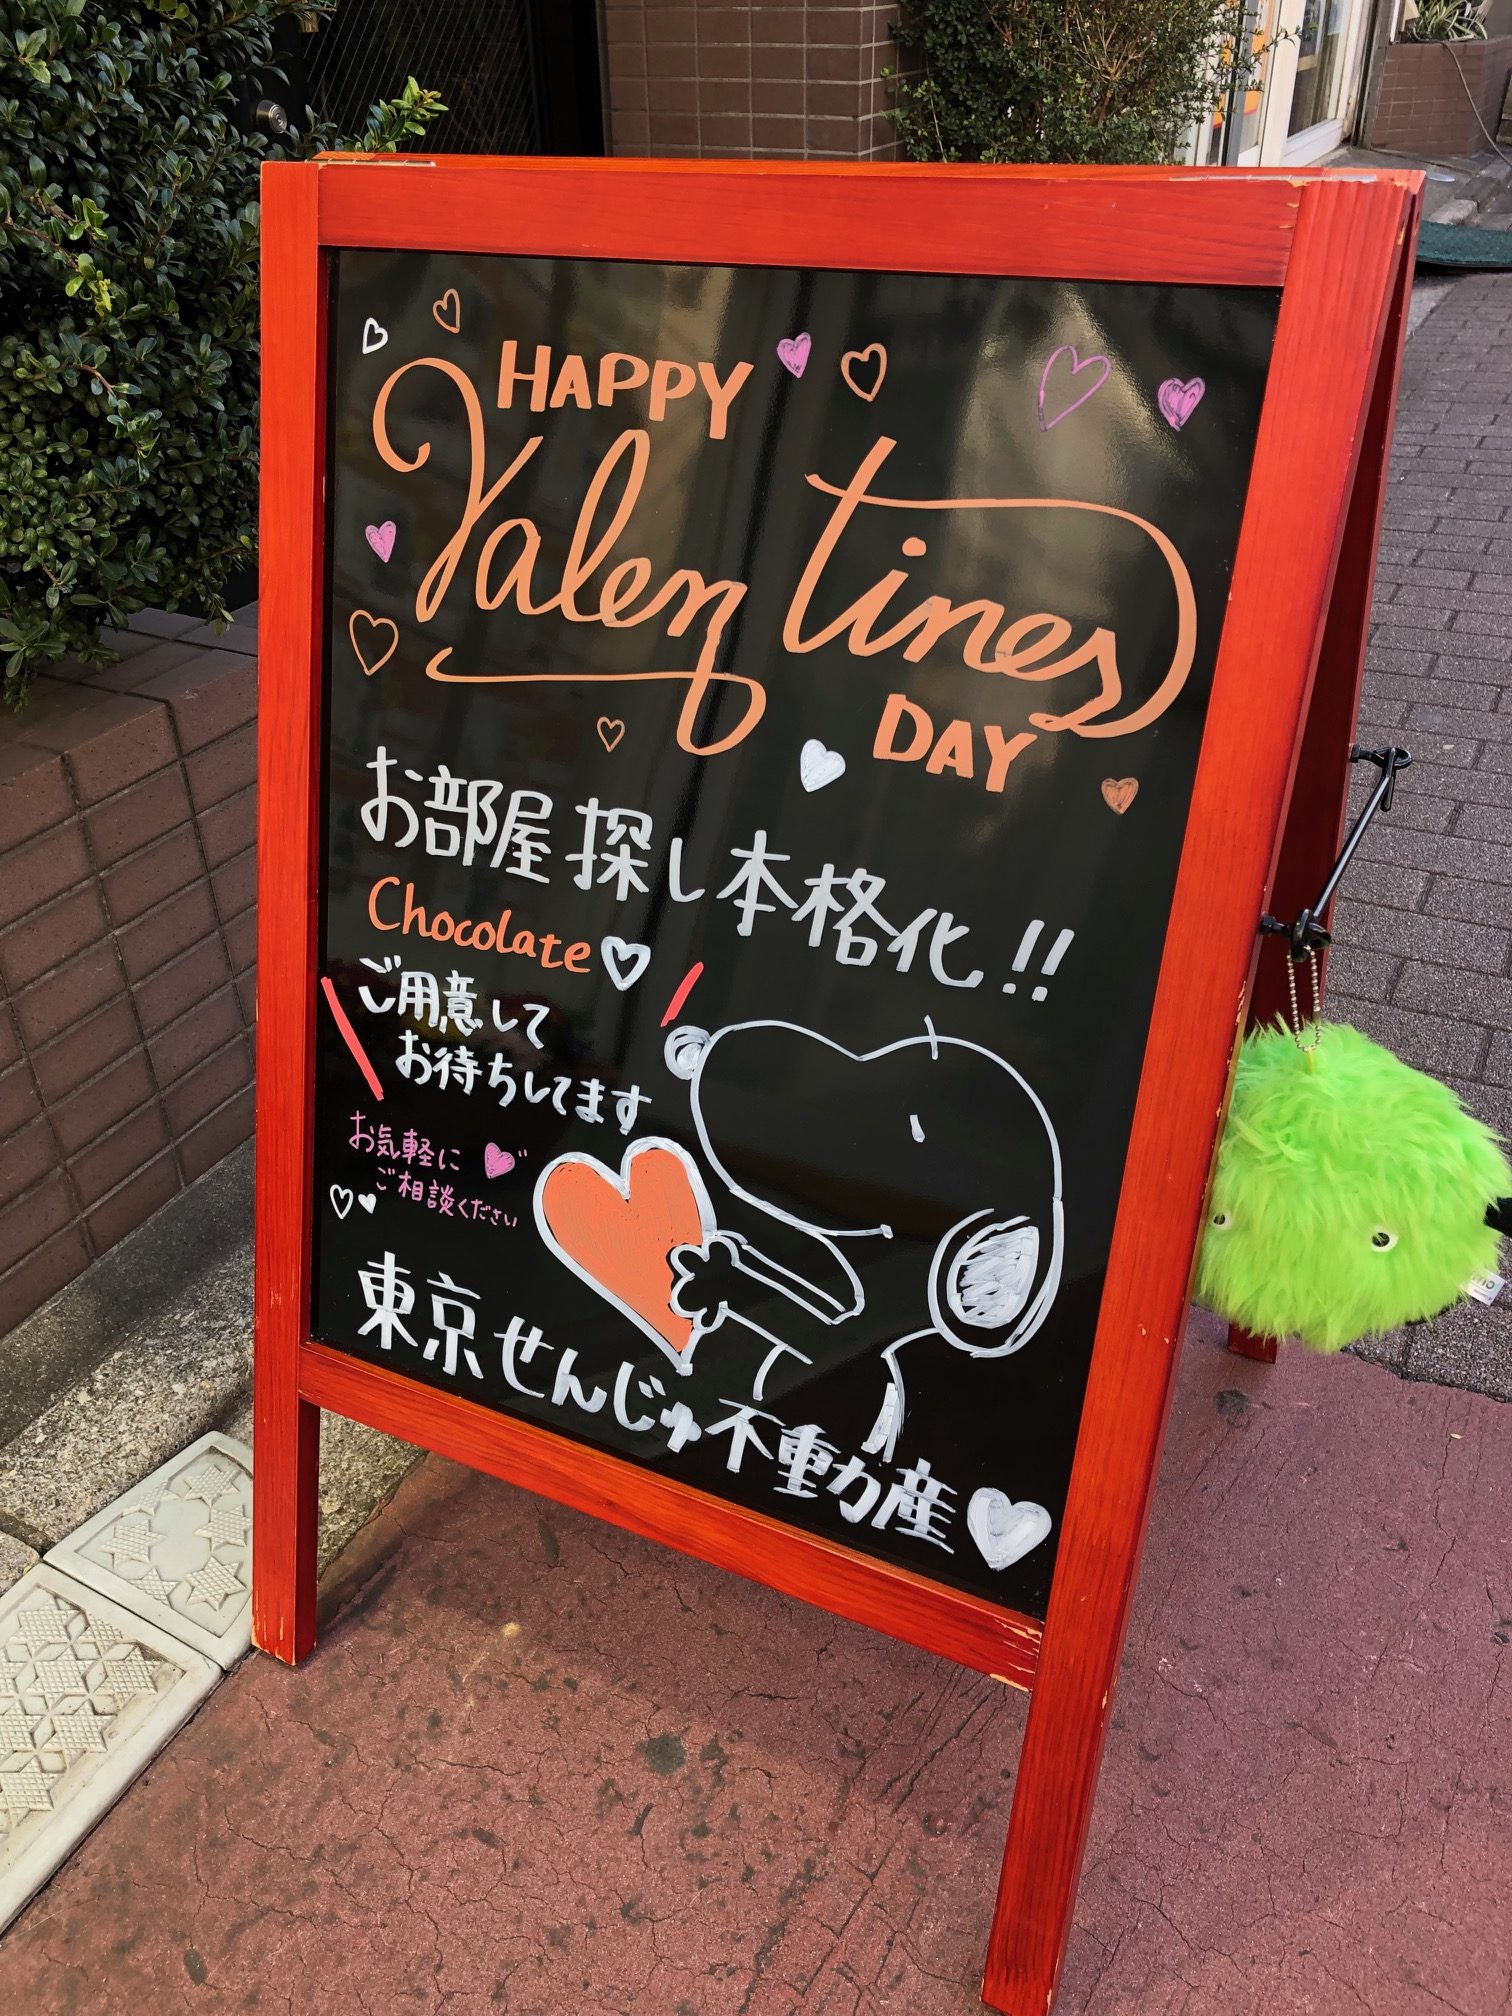 HAPPY
Valentines
DAY
お部屋探し本格化!!
Chocolate♡
ご用意して
お待ちしてます
お気軽に
ご相談ください
東京せんじゅ不動産